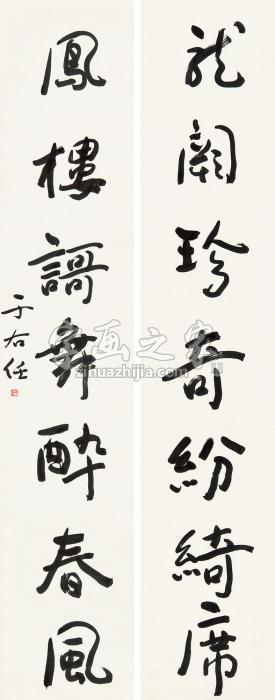 龍闕珍奇紛綺席
鳳樓謌舞醉春風
于右任
字画之家
zihuazhijia.com